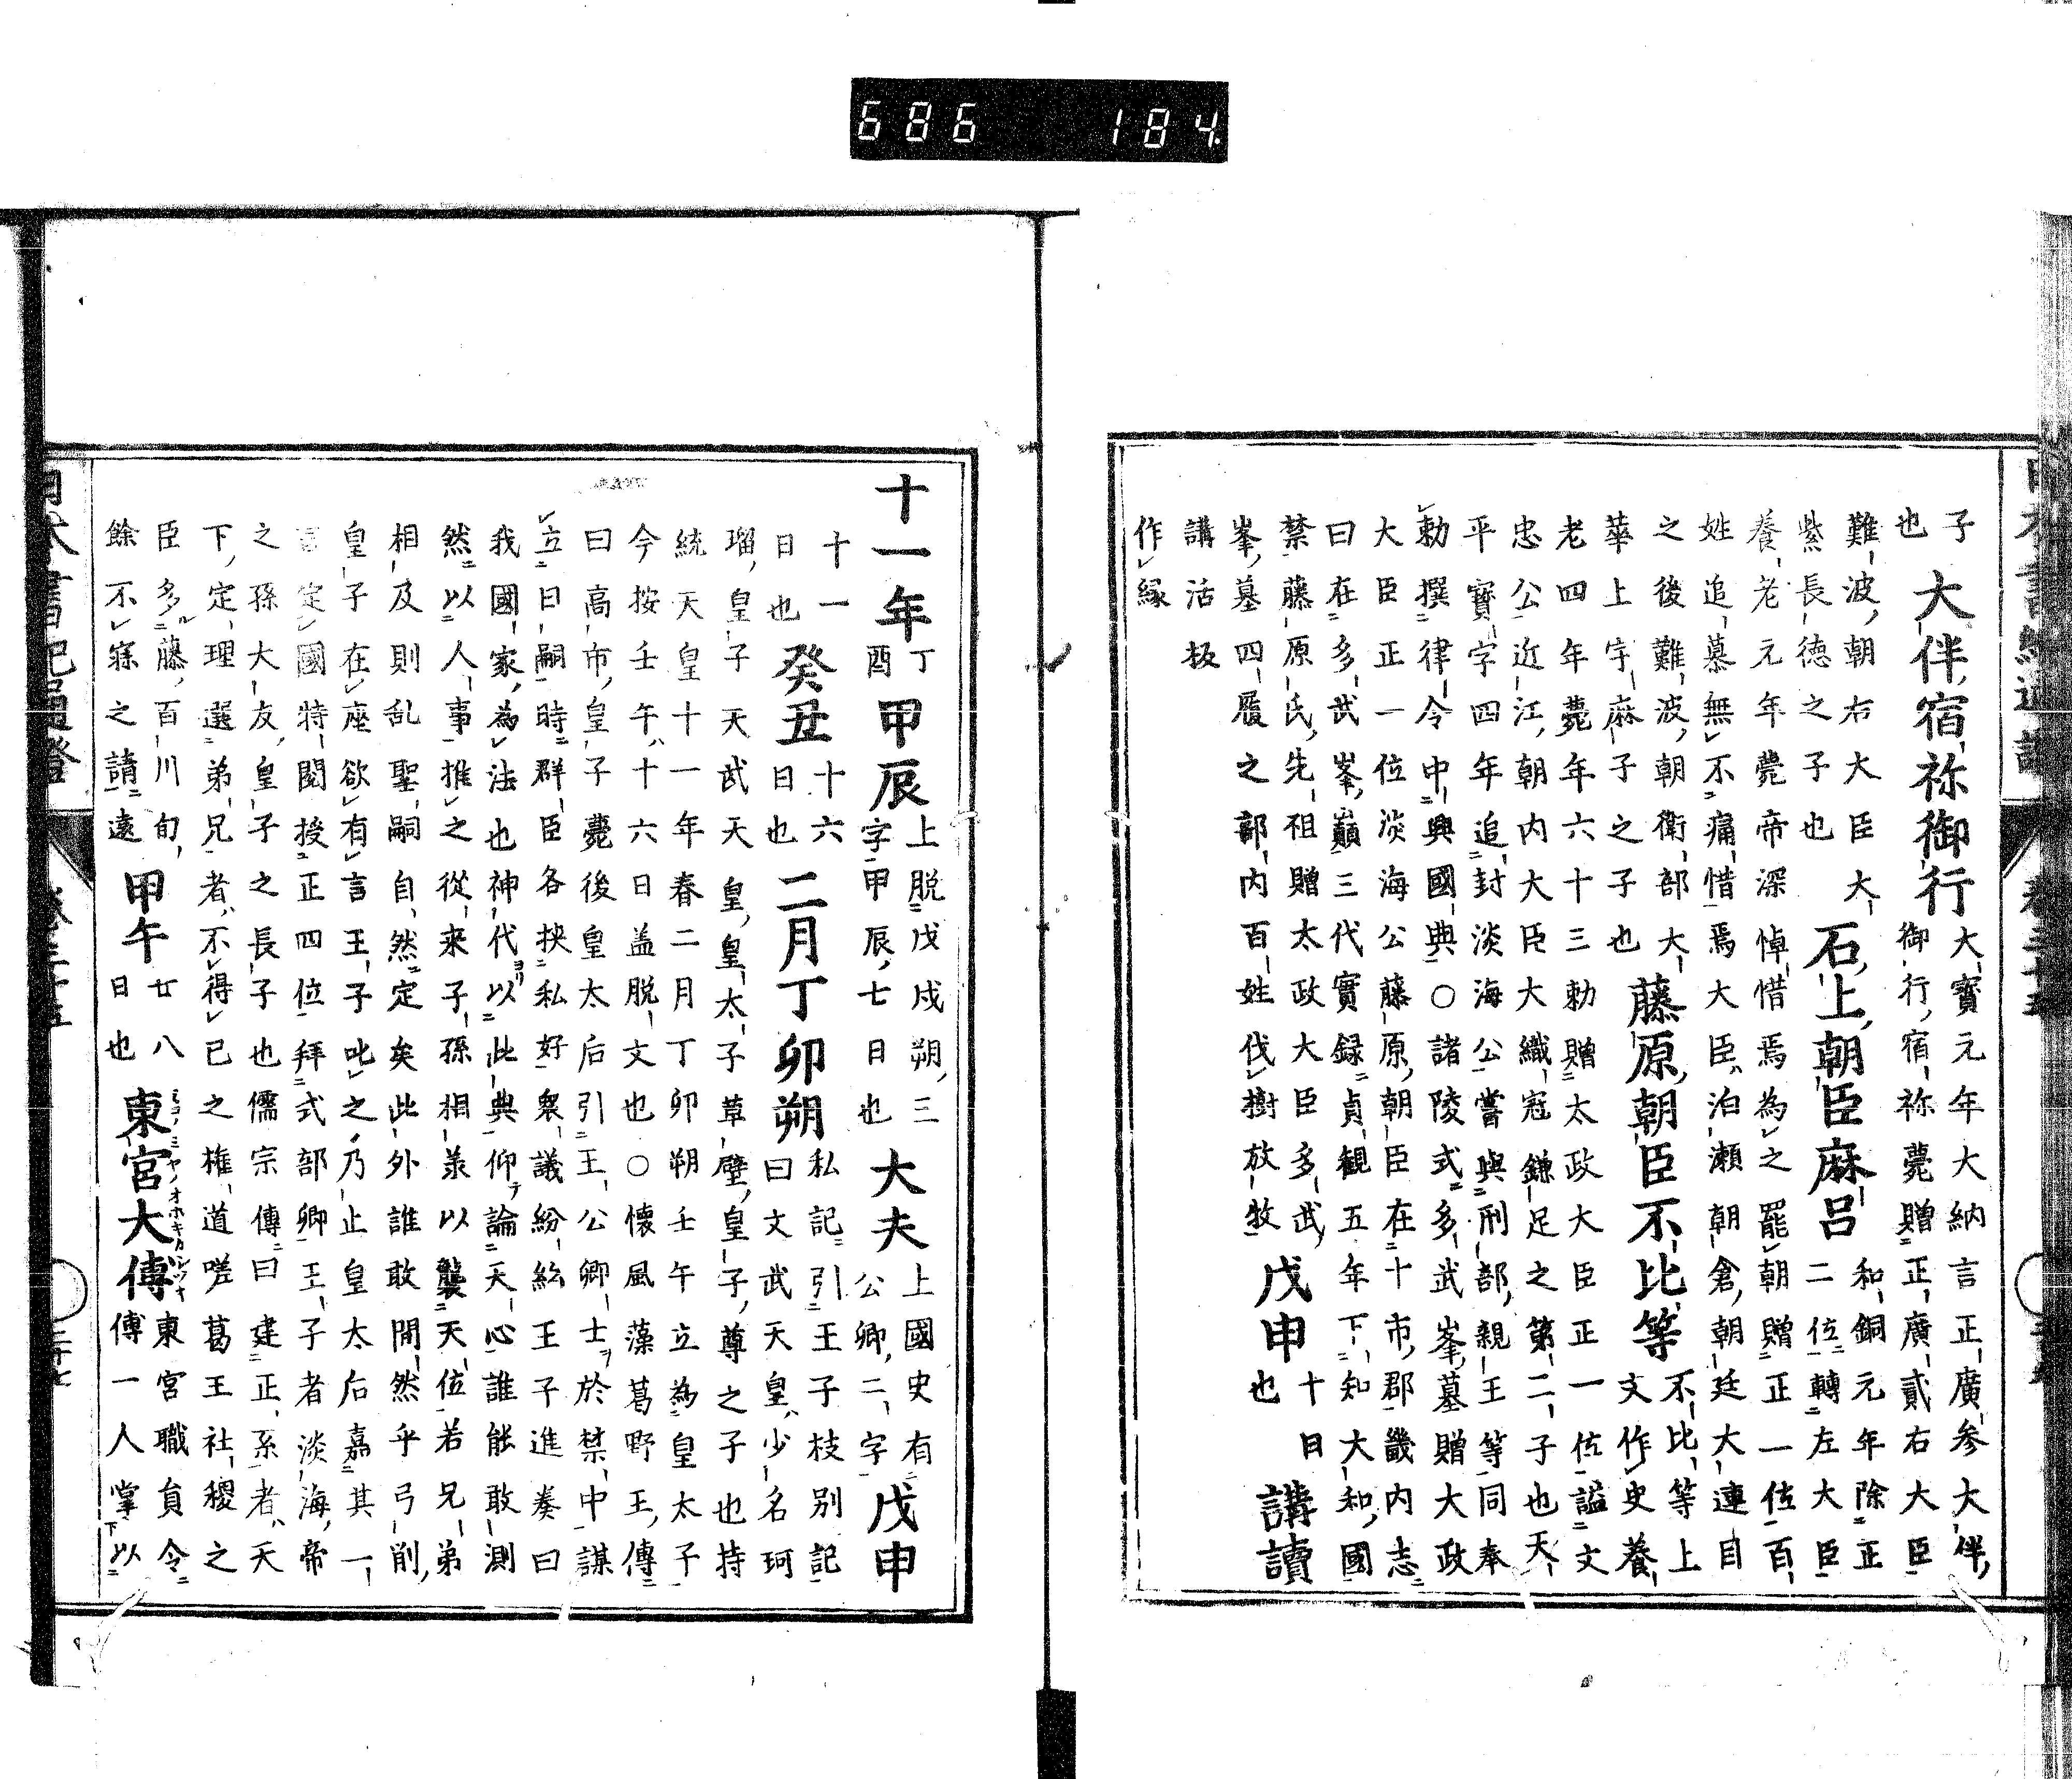 686 184
子
也 大伴宿祢御行 大寶元年大納言正廣參大伴
御行宿祢薨贈正廣貳右大臣
難波朝右大臣大
紫長徳之子也 石上朝臣麻呂 和銅元年除正
二位轉左大臣
養老元年薨帝深悼惜焉為之罷朝贈正一位百
姓追慕無不痛惜焉大臣泊瀬朝倉朝廷大連目
之後難波朝衛部大
華上宇麻子之子也 藤原朝臣不比等 不比等上
文作史養
老四年薨年六十三勅贈太政大臣正一位謚文
忠公近江朝内大臣大織冠鎌足之第二子也天
平寶字四年追封淡海公嘗與刑部親王等同奉
勅撰律令中興國典○諸陵式多武峯墓贈大政
大臣正一位淡海公藤原朝臣在十市郡畿内志
曰在多武峯巓三代實録貞觀五年下知大和國
禁藤原氏先祖贈太政大臣多武
峯墓四履之部内百姓伐樹放牧 戊申 十日
也 講讀
講活板
作縁
十一年 丁
酉 甲辰 上脱戊戌朔三
字甲辰七日也 大夫 上國史有
公卿二字 戊申
十一
日也 癸丑 十六
日也 二月丁卯朔 私記引王子枝別記
曰文武天皇少名珂
瑠皇子天武天皇皇太子草壁皇子尊之子也持
統天皇十一年春二月丁卯朔壬午立為皇太子
今按壬午十六日盖脱文也○懐風藻葛野王傳
曰高市皇子薨後皇太后引王公卿士於禁中謀
立日嗣時群臣各挾私好衆議紛紜王子進奏曰
我國家為法也神代以此典仰論天心誰能敢測
然以人事推之從來子孫相羕以襲天位若兄弟
相及則乱聖嗣自然定矣此外誰敢間然乎弓削
皇子在座欲有言王子叱之乃止皇太后嘉其一
言定國特閲授正四位拜式部卿王子者淡海帝
之孫大友皇子之長子也儒宗傳曰建正系者天
下定理選弟兄者不得已之権道嗟葛王社稷之
臣多藤百川旬
餘不寐之請遠 甲午 廿八
日也 東宮大傅 東宮職貟令
傅一人掌以